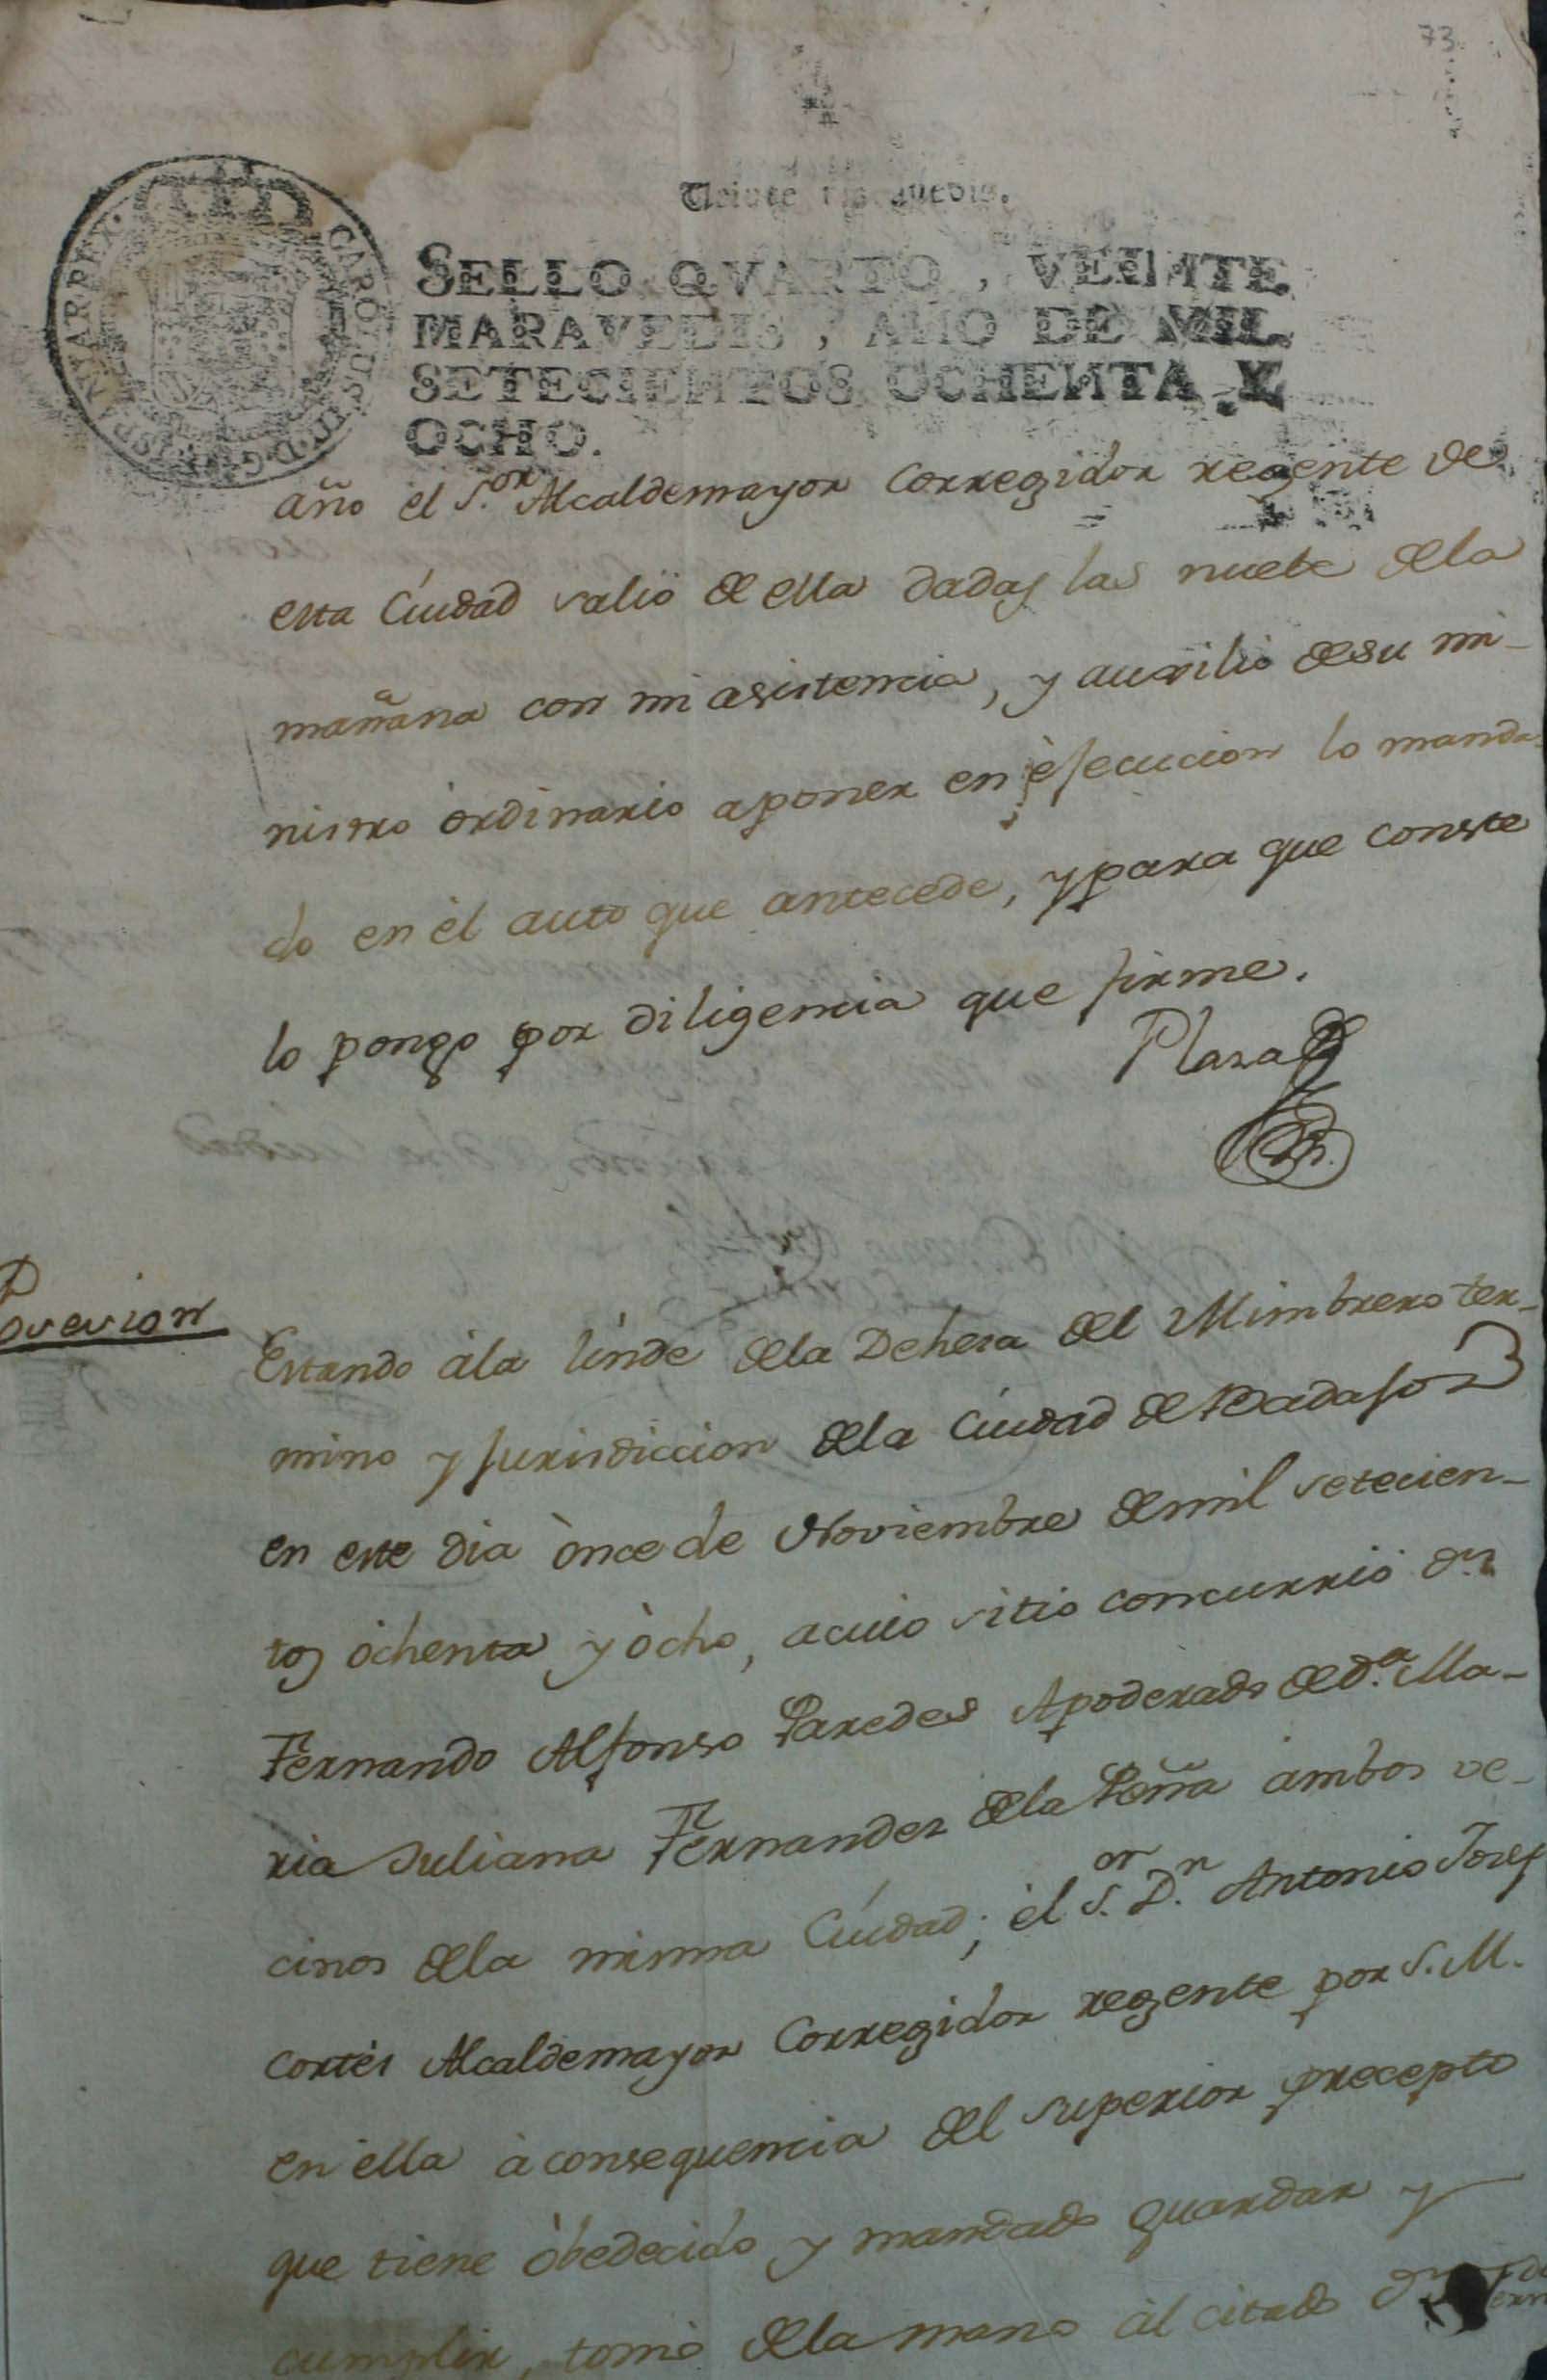 73
SELLO QVARTO, VEINTE
MARAVEDIS, AÑO DE MIL
SETECIENTOS OCHENTA Y
OCHO.
CAROLUS III D.G. HISPANIAR REX
año el S.or Alcaldemayor Corregidor regente de
esta Ciudad salio de ella dadas las nuebe dela
mañana con mi asistencia, y auxilio desu mi-
nistro òrdinario aponer en èjecucion lo manda
do en èl auto que antecede, y para que conste
lo pongo por diligencia que firme.
Plaza
Posesion
Estando àla linde dela Dehesa del Mimbrero ter-
mino y Jurisdiccion dela Ciudad de Badajoz
en este dia ònce de Noviembre demil setecien-
tos òchenta y òcho, acuio sitio concurriò d.n
Fernando Alfonso Paredes Apoderado de d.a Ma-
ria Juliana Fernandez dela Peña ambos ve-
cinos dela misma Ciudad; èl S.or D.n Antonio Josef
Cortès Alcaldemayor Corregidor regente por S.M.
en èlla à consequencia del superior precepto
que tiene òbedecido y mandado guardar y
cumplir, tomò dela mano àl citado